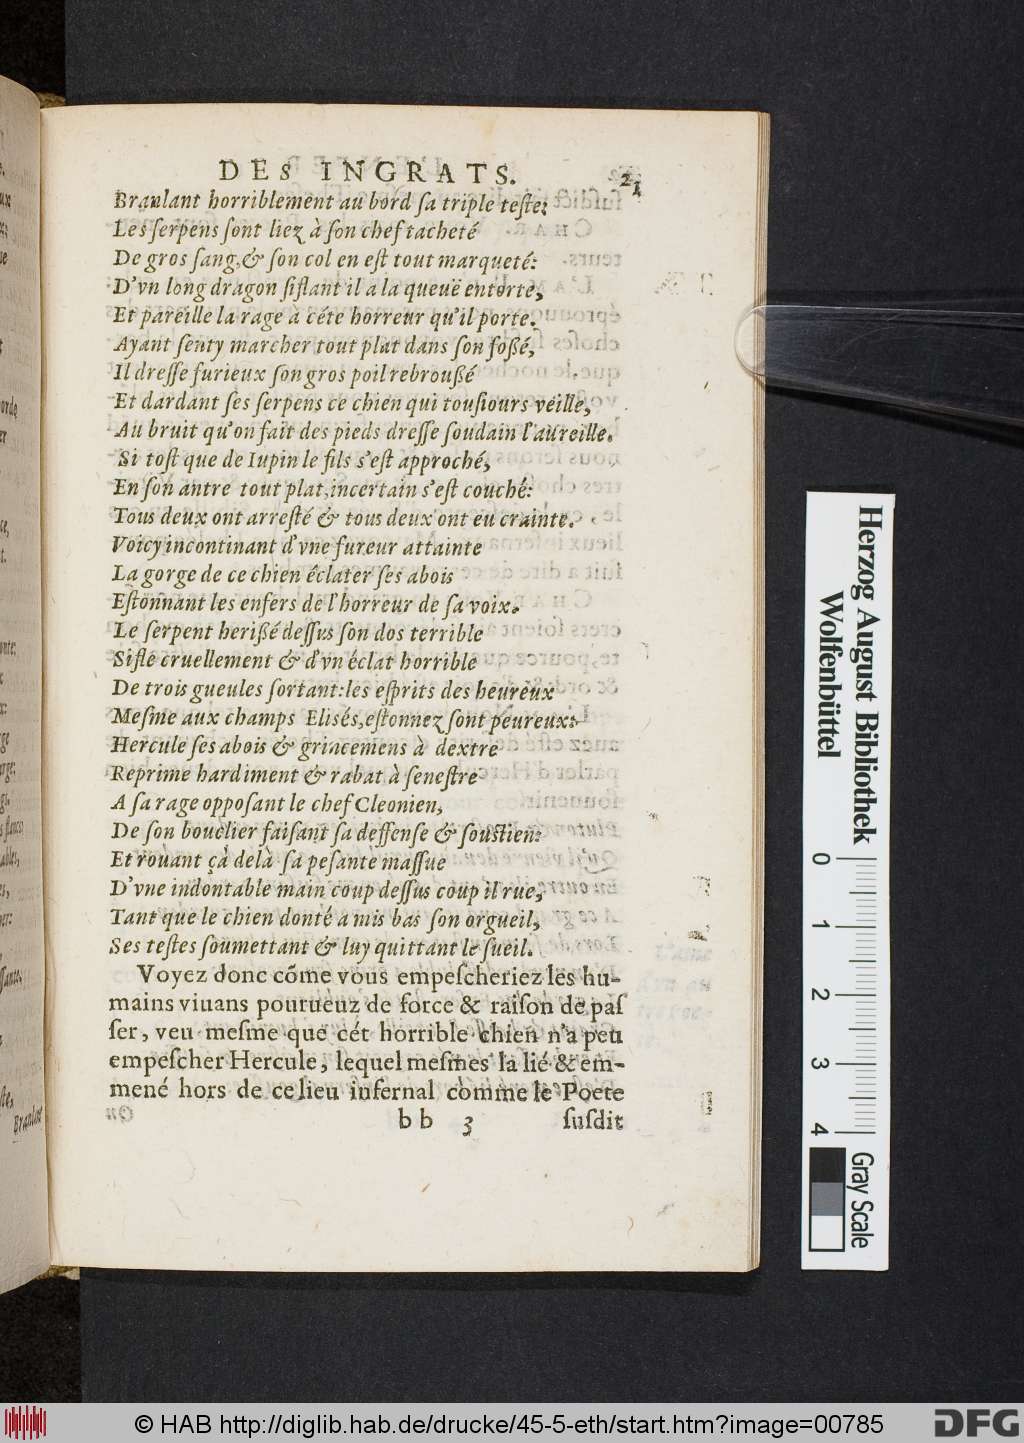 DES INGRATS. 21
Branlant horriblement au bord ſa triple teſte:
Les ſerpens ſont liez à ſon chef tacheté
De gros ſang,& ſon col en eſt tout marqueté:
D'vn long dragon ſiflant il a la queuë entorte,
Et pareille la rage á céte horreur qu'il porte.
Ayant ſenty marcher tout plat dans ſon foßé,
Il dreſſe furieux ſon gros poil rebroußé
Et dardant ſes ſerpens ce chien qui touſiours veille,
Au bruit qu'on fait des pieds dreſſe ſoudain l'aureille.
Si toſt que de Iupin le fils s'eſt approché,
En ſon antre tout plat,incertain s'eſt couché:
Tous deux ont arreſté & tous deux ont eu crainte.
Voicy incontinant d'vne fureur attainte
La gorge de ce chien éclater ſes abois
Eſtonnant les enfers de l'horreur de ſa voix.
Le ſerpent herißé deſſus ſon dos terrible
Siſle cruellement & d'vn éclat horrible
De trois gueules ſortant:les eſprits des heureux
Meſme aux champs Elisés,eſtonnez ſont peureux:
Hercule ſes abois & grincemens à dextre
Reprime hardiment & rabat à ſeneſtre
A ſa rage oppoſant le chef Cleonien,
De ſon bouclier faiſant ſa deffenſe & ſouſtien:
Et rouant çà delà ſa peſante maſſue
D'vne indontable main coup deſſus coup il rue,
Tant que le chien donté a mis bas ſon orgueil,
Ses teſtes ſoumettant & luy quittant le ſueil.
Voyez donc cõme vous empeſcheriez les hu-
mains viuans pourueuz de force & raiſon de paſ
ſer, veu meſme que cét horrible chien n'a peu
empeſcher Hercule, lequel meſmes la lié & em-
mené hors de ce lieu infernal comme le Poete
b b 3 ſuſdit
Herzog August Bibliothek
Wolfenbüttel
0 1 2 3 4
Gray Scale
© HAB http://diglib.hab.de/drucke/45-5-eth/start.htm?image=00785
DFG